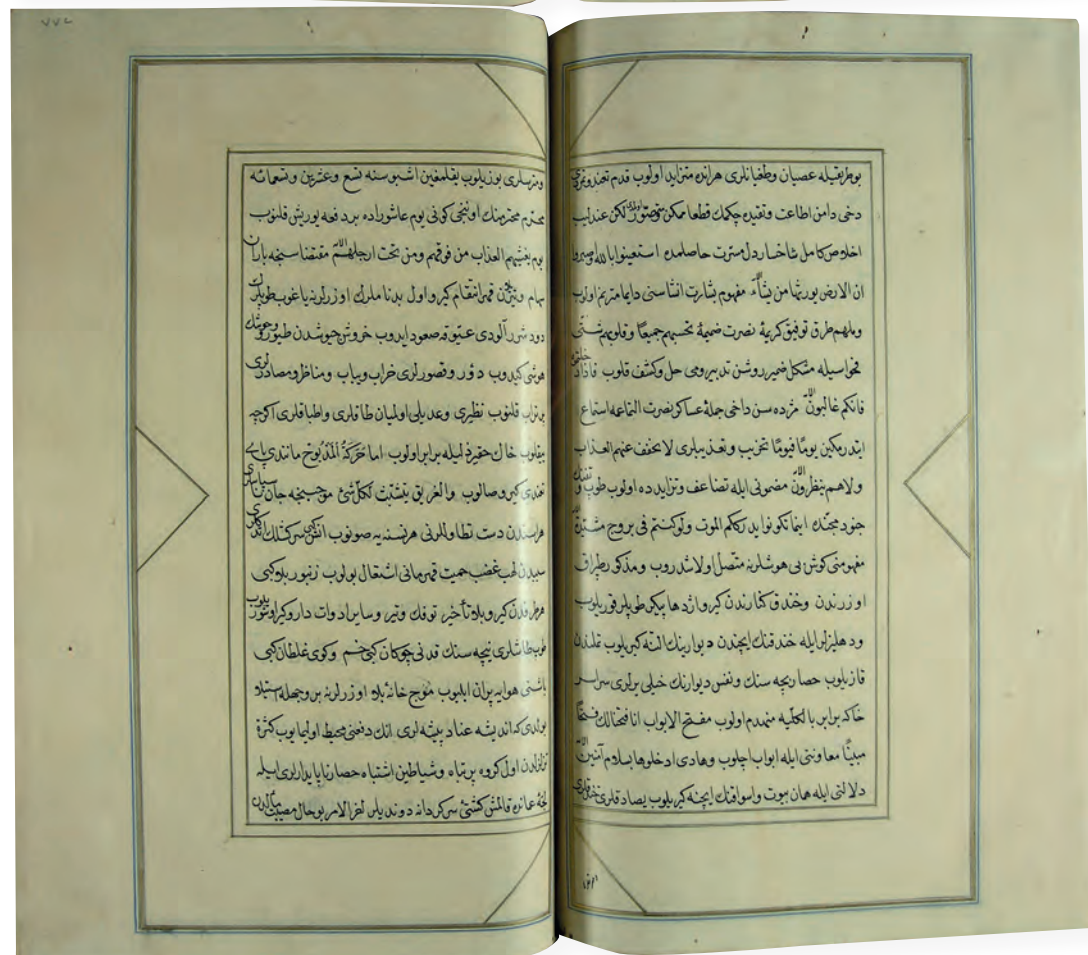 بوطریقیله عصیان وطغیانلری هرآنده متزاید اولوب قدم تعند وتمرد
دخی دامن اطاعت وتقیده چکمك قطعا ممکن لکن عندلیب
اخلاص کامل شاخسار دل مسرت حاصلمده استعینوا بالله واصبروا
ان الارض یورثها من یشآء مفهوم بشارت انشاسنی دایما مترنم اولوب
وملهم طرق توفیق کریمهٔ نصرت ضمیمهٔ تحسبهم جمیعًا وقلوبهم شتّی
فحواسیله مشکل ضمیر روشن تدبیرومی حل وکشف قلوب فاذا
فانکم غالبون مژده سن داخی جملهٔ عساکر نصرت التماعه استماع
ایتدرمکین یومًا فیومًا تخریب وتعذیبلری لا یخفف عنهم العذاب
ولا هم ینظرون مضمونی ایله تضاعف وتزایدده اولوب طوپ وتفنك
جنود اینما تکونوا یدرککم الموت ولوکنتم فی بروج مشیّدة
مفهومنی کوش بی هوشلرینه متصل اولاشدروب ومذکور
اوزرندن وخندق کنارندن کیرو اژدها پیکر طوپلر قوریلوب
ودهلیزلر ایله خندقنك ایچندن دیوارینك التنه کیریلوب تملندن
قازیلوب حصار بیچه سنك ونفس دیوارنك خیلی یرلری سراسر
خاکه برابر بالکلیه منهدم اولوب مفتح الابواب انا فتحنالك فتحًا
مبینًا معاونتی ایله ابواب اچلوب وهادی ادخلوها بسلام آمنین
دلالتی ایله همان بیوت واسواقنك ایچنه کیریلوب
ومترسلری بوزیلوب یقلمغین اشبو سنه تسع وعشرین وتسعمائه
محترمنك اونجی کونی یوم عاشوراده بر دفعه یوریش قلنوب
یوم یغشیهم العذاب من فوقهم ومن تحت ارجلهم مقتضاسنجه باران
سهام قهر انتقام کیرو اول بدناملرك اوزرلرینه یاغوب طوپلرك
دود شررآلودی عیوقه صعود ایدوب خروش جوشدن طیور ووحوشك
هوشی کیدوب دور وقصورلری خراب ویباب ومناظر ومصادرلری
بر تراب قلنوب نظیری وعدیلی اولمیان طاقلری واطباقلری اکرچه
یقلوب خاك حقیر ذلیله برابر اولوب اما حَرَکَةُ المَذبوح مانندی پای
تعندی کیرو صالوب والغریق یتشبث لکل شئ موجبنجه جان
هراسندن دست تطاوللرنی هر نسنه یه صونوب
سببدن لهب غضب حمیت قهرمانی اشتعال بولوب زنبور بلا کبی
هر طرفدن کیرو بلا تأخیر توفك وتیر وسایر ادوات داروکیر
طوپ طاشلری نیچه سنك قدنی چوکان کبی خم وکوی غلطان کبی
باشنی هوایه پران ایلیوب موج خانهٔ بلا اوزرلرینه بروجهله استیلا
بولدی که اندیشه عناد پیشه لری انك دفعنی محیط اولمایوب کثرة
تزلزلدن اول کروه پرتباه وشیاطین اشتباه حصار ناپایدارلری ایله
لجهٔ قالمش کشتئ سرکردانه دوندیلر آخر الامر بو حال